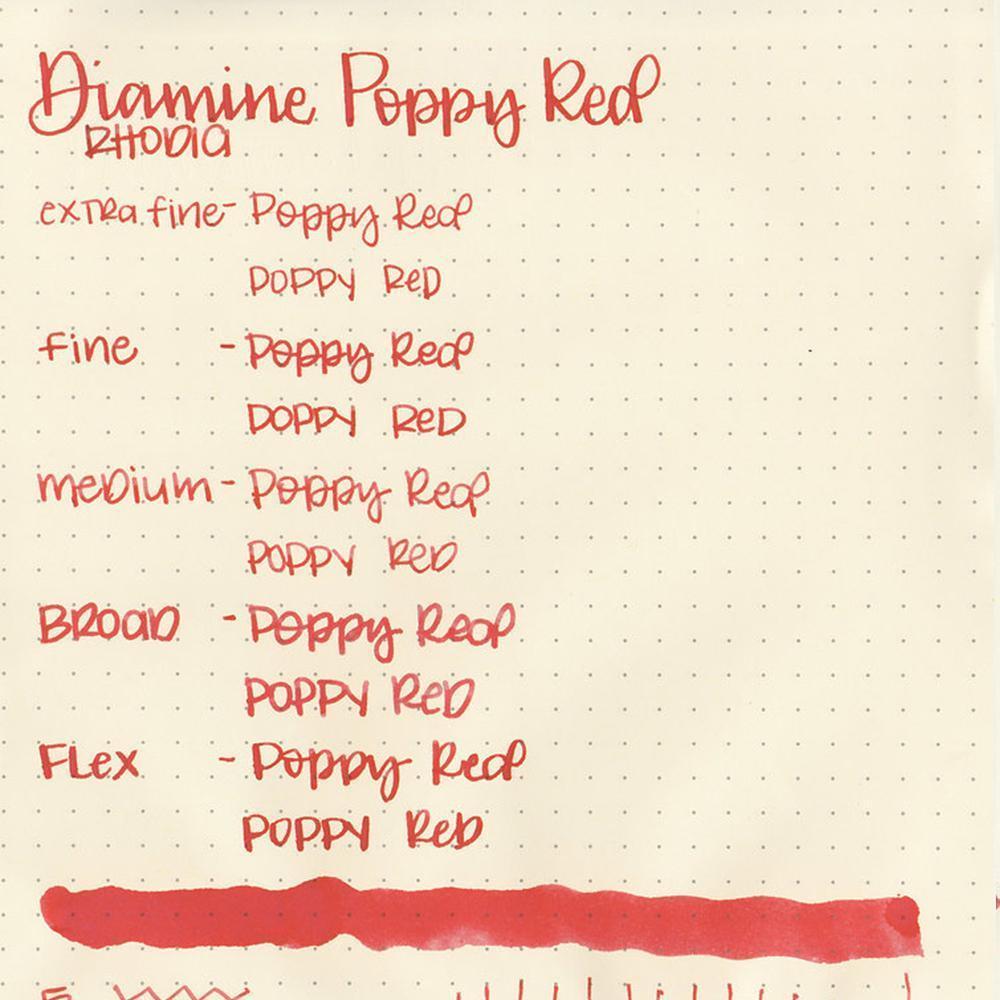 Diamine Poppy Red
RHODIA
extra fine - Poppy Red
POPPY ReD
fine - Poppy Red
POPPY ReD
meDium - Poppy Red
POPPY ReD
BROAD - Poppy Red
POPPY ReD
FLex - Poppy Red
POPPY ReD